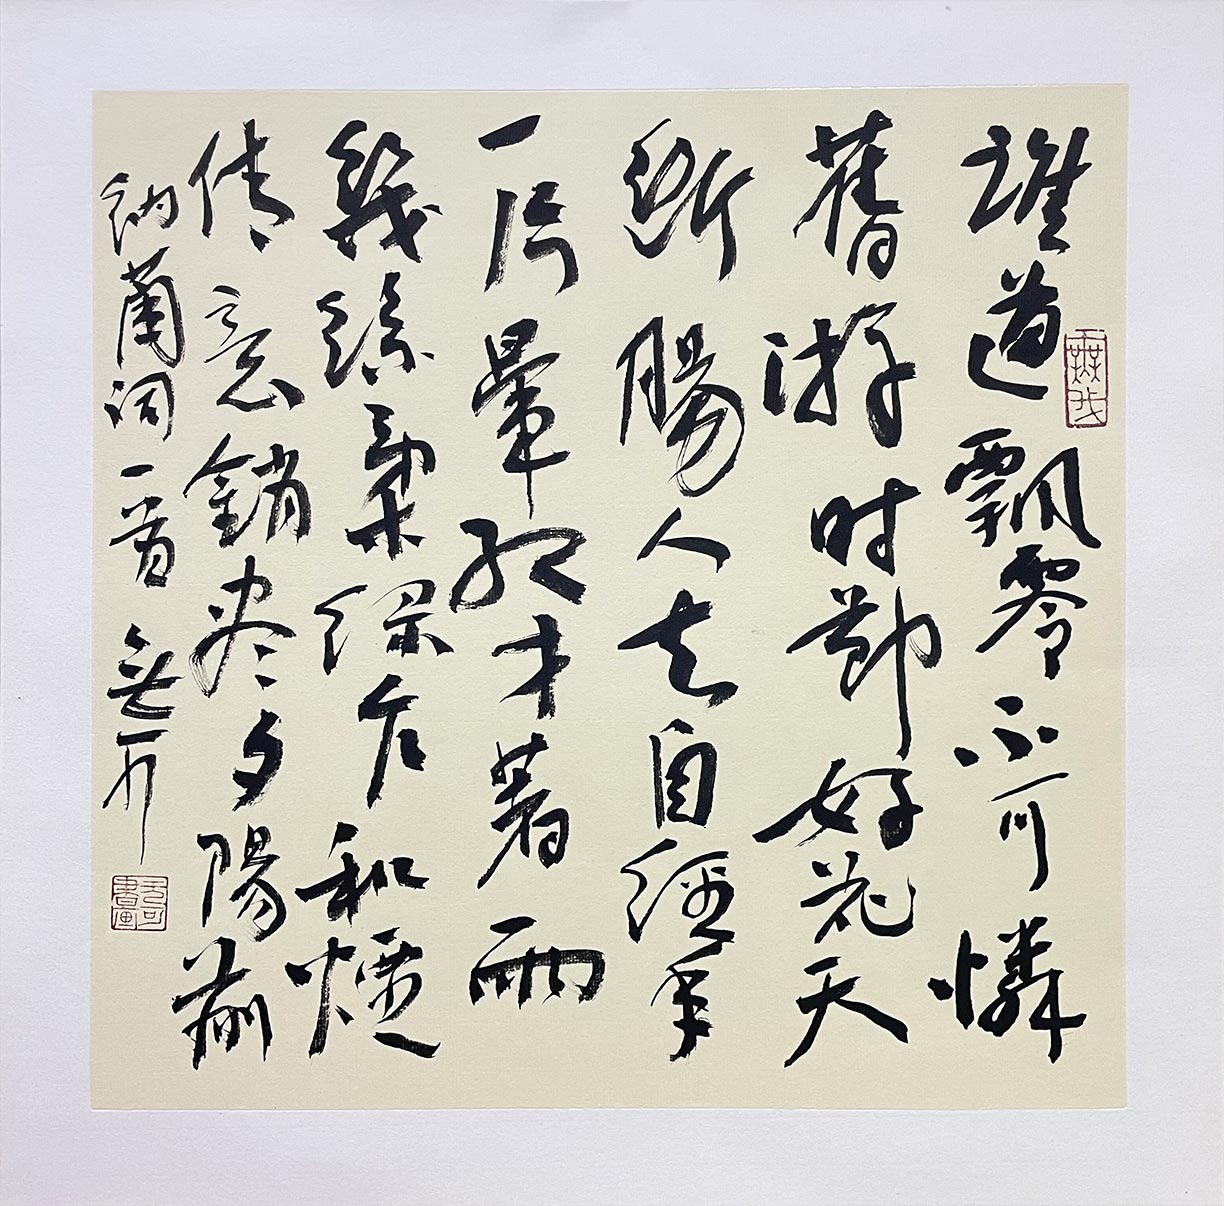 誰道飄零不可憐
舊游时節好花天
斷腸人去自經年
一片暈紅才著雨
幾絲柔綠乍和煙
倩魂銷尽夕陽前
納蘭詞一首 無可
無我
无可書畫